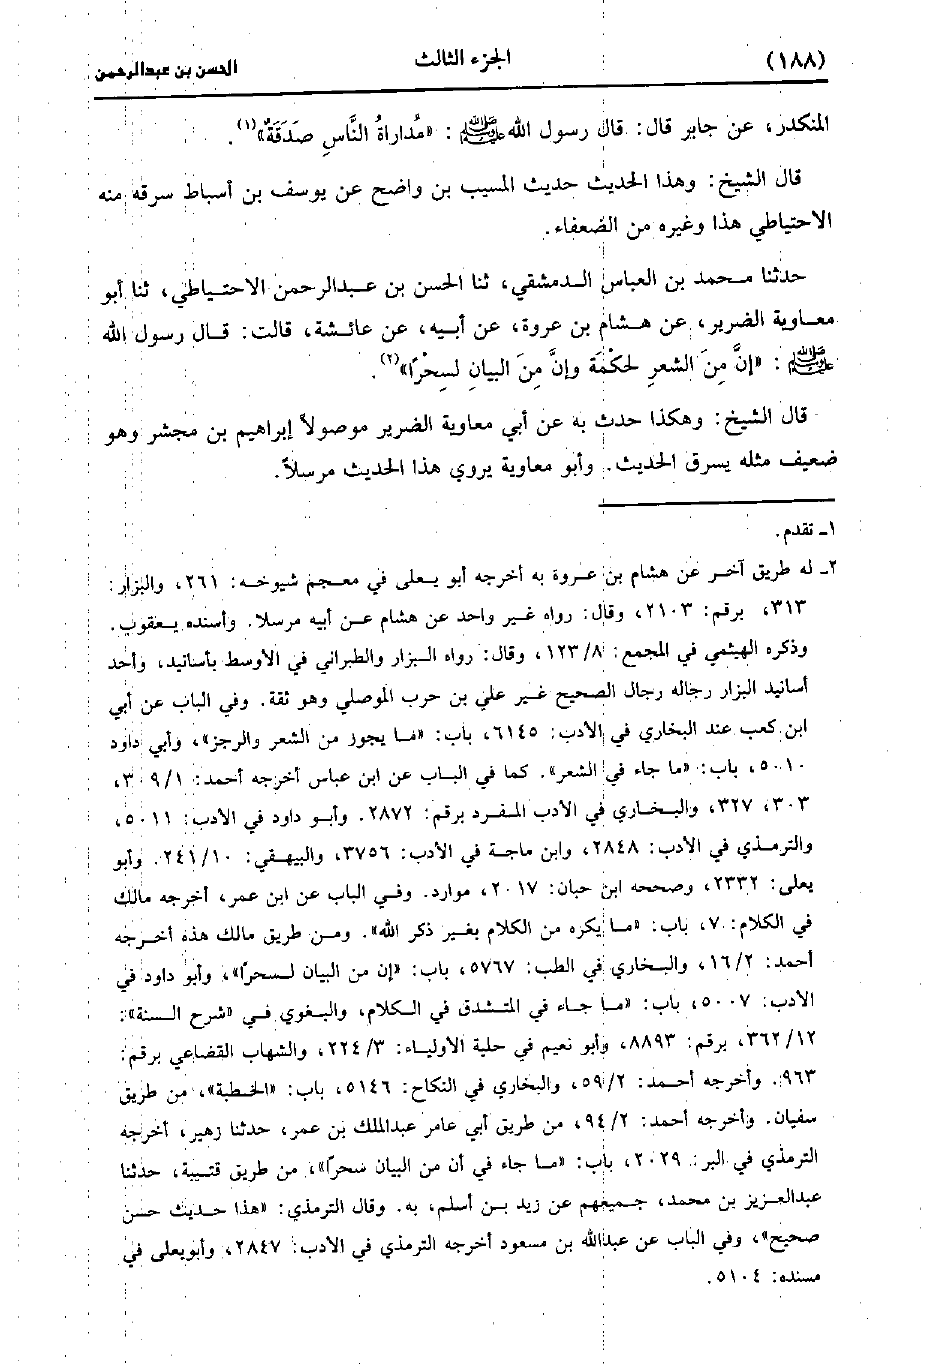 (١٨٨) الجزء الثالث الحسن بن عبدالرحمن
المنكدر، عن جابر قال: قال رسول الله ﷺ: «مُداراةُ النَّاسِ صَدَقَةٌ»(١).
قال الشيخ: وهذا الحديث حديث المسيب بن واضح عن يوسف بن أسباط سرقه منه
الاحتياطي هذا وغيره من الضعفاء.
حدثنا محمد بن العباس الدمشقي، ثنا الحسن بن عبدالرحمن الاحتياطي، ثنا أبو
معاوية الضرير، عن هشام بن عروة، عن أبيه، عن عائشة، قالت: قال رسول الله
ﷺ: «إنَّ مِنَ الشعرِ لحكْمَة وإنَّ مِنَ البيان لسِحْرًا»(٢).
قال الشيخ: وهكذا حدث به عن أبي معاوية الضرير موصولاً إبراهيم بن مجشر وهو
ضعيف مثله يسرق الحديث. وأبو معاوية يروي هذا الحديث مرسلاً.
١ـ تقدم.
٢ـ له طريق آخر عن هشام بن عروة به أخرجه أبو يعلى في معجم شيوخه: ٢٦١، والبزار:
٣١٣، برقم: ٢١٠٣، وقال: رواه غير واحد عن هشام عن أبيه مرسلا. وأسنده يعقوب.
وذكره الهيثمي في المجمع: ١٢٣/٨، وقال: رواه البزار والطبراني في الأوسط بأسانيد، وأحد
أسانيد البزار رجاله رجال الصحيح غير علي بن حرب الموصلي وهو ثقة. وفي الباب عن أبي
ابن كعب عند البخاري في الأدب: ٦١٤٥، باب: «ما يجوز من الشعر والرجز»، وأبي داود
٥٠١٠، باب: «ما جاء في الشعر». كما في الباب عن ابن عباس أخرجه أحمد: ٣٠٩/١،
٣٠٣، ٣٢٧، والبخاري في الأدب المفرد برقم: ٢٨٧٢. وأبو داود في الأدب: ٥٠١١،
والترمذي في الأدب: ٢٨٤٨، وابن ماجة في الأدب: ٣٧٥٦، والبيهقي: ٢٤١/١٠. وأبو
يعلى: ٢٣٣٢، وصححه ابن حبان: ٢٠١٧، موارد. وفي الباب عن ابن عمر، أخرجه مالك
في الكلام: ٧، باب: «ما يكره من الكلام بغير ذكر الله». ومن طريق مالك هذه أخرجه
أحمد: ١٦/٢، والبخاري في الطب: ٥٧٦٧، باب: «إن من البيان لسحرًا»، وأبو داود في
الأدب: ٥٠٠٧، باب: «ما جاء في المتشدق في الكلام، والبغوي في «شرح السنة»:
٣٦٢/١٢، برقم: ٨٨٩٣، وأبو نعيم في حلية الأولياء: ٢٢٤/٣، والشهاب القضاعي برقم:
٩٦٣. وأخرجه أحمد: ٥٩/٢، والبخاري في النكاح: ٥١٤٦، باب: «الخطبة»، من طريق
سفيان. وأخرجه أحمد: ٩٤/٢، من طريق أبي عامر عبدالملك بن عمر، حدثنا زهير، أخرجه
الترمذي في البر: ٢٠٢٩، باب: «ما جاء في أن من البيان سحرًا»، من طريق قتيبة، حدثنا
عبدالعزيز بن محمد، جميعهم عن زيد بن أسلم، به. وقال الترمذي: «هذا حديث حسن
صحيح»، وفي الباب عن عبدالله بن مسعود أخرجه الترمذي في الأدب: ٢٨٤٧، وأبويعلى في
مسنده: ٥١٠٤.